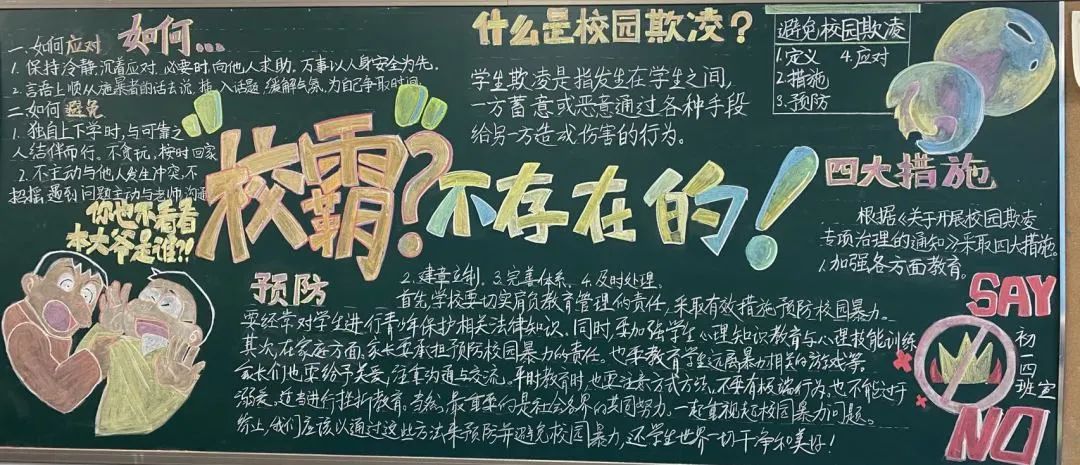 如何…
一.如何应对
1.保持冷静,沉着应对,必要时,向他人求助,万事以人身安全为先。
2.言语上顺从施暴者的话去说,插入话题,缓解气氛,为自己争取时间
二.如何避免
1.独自上下学时,与可靠之
人结伴而行。不贪玩,按时回家
2.不主动与他人发生冲突,不
招摇,遇到问题主动与老师沟通
你也不看看
本大爷是谁?!
什么是校园欺凌?
学生欺凌是指发生在学生之间,
一方蓄意或恶意通过各种手段
给另一方造成伤害的行为。
避免校园欺凌
1.定义 4.应对
2.措施
3.预防
"校霸"?不存在的!
四大措施
根据《关于开展校园欺凌
专项治理的通知》采取四大措施。
1.加强各方面教育。
2.建章立制。3.完善体系。4.及时处理。
预防
首先,学校要切实肩负教育管理的责任,采取有效措施预防校园暴力。
要经常对学生进行青少年保护相关法律知识。同时,要加强学生心理知识教育与心理技能训练
其次,在家庭方面,家长要承担预防校园暴力的责任。也要教育学生远离暴力相关的游戏等。
家长们也要给予关爱,注重沟通与交流。平时教育时,也要注意方式方法,不要有极端行为。也不能过于
溺爱。适当进行挫折教育。当然,最重要的是社会各界的共同努力。一起重视起校园暴力问题。
综上,我们应该以通过这些方法来预防并避免校园暴力,还学生世界一切干净和美好!
SAY
NO
初一四班宣